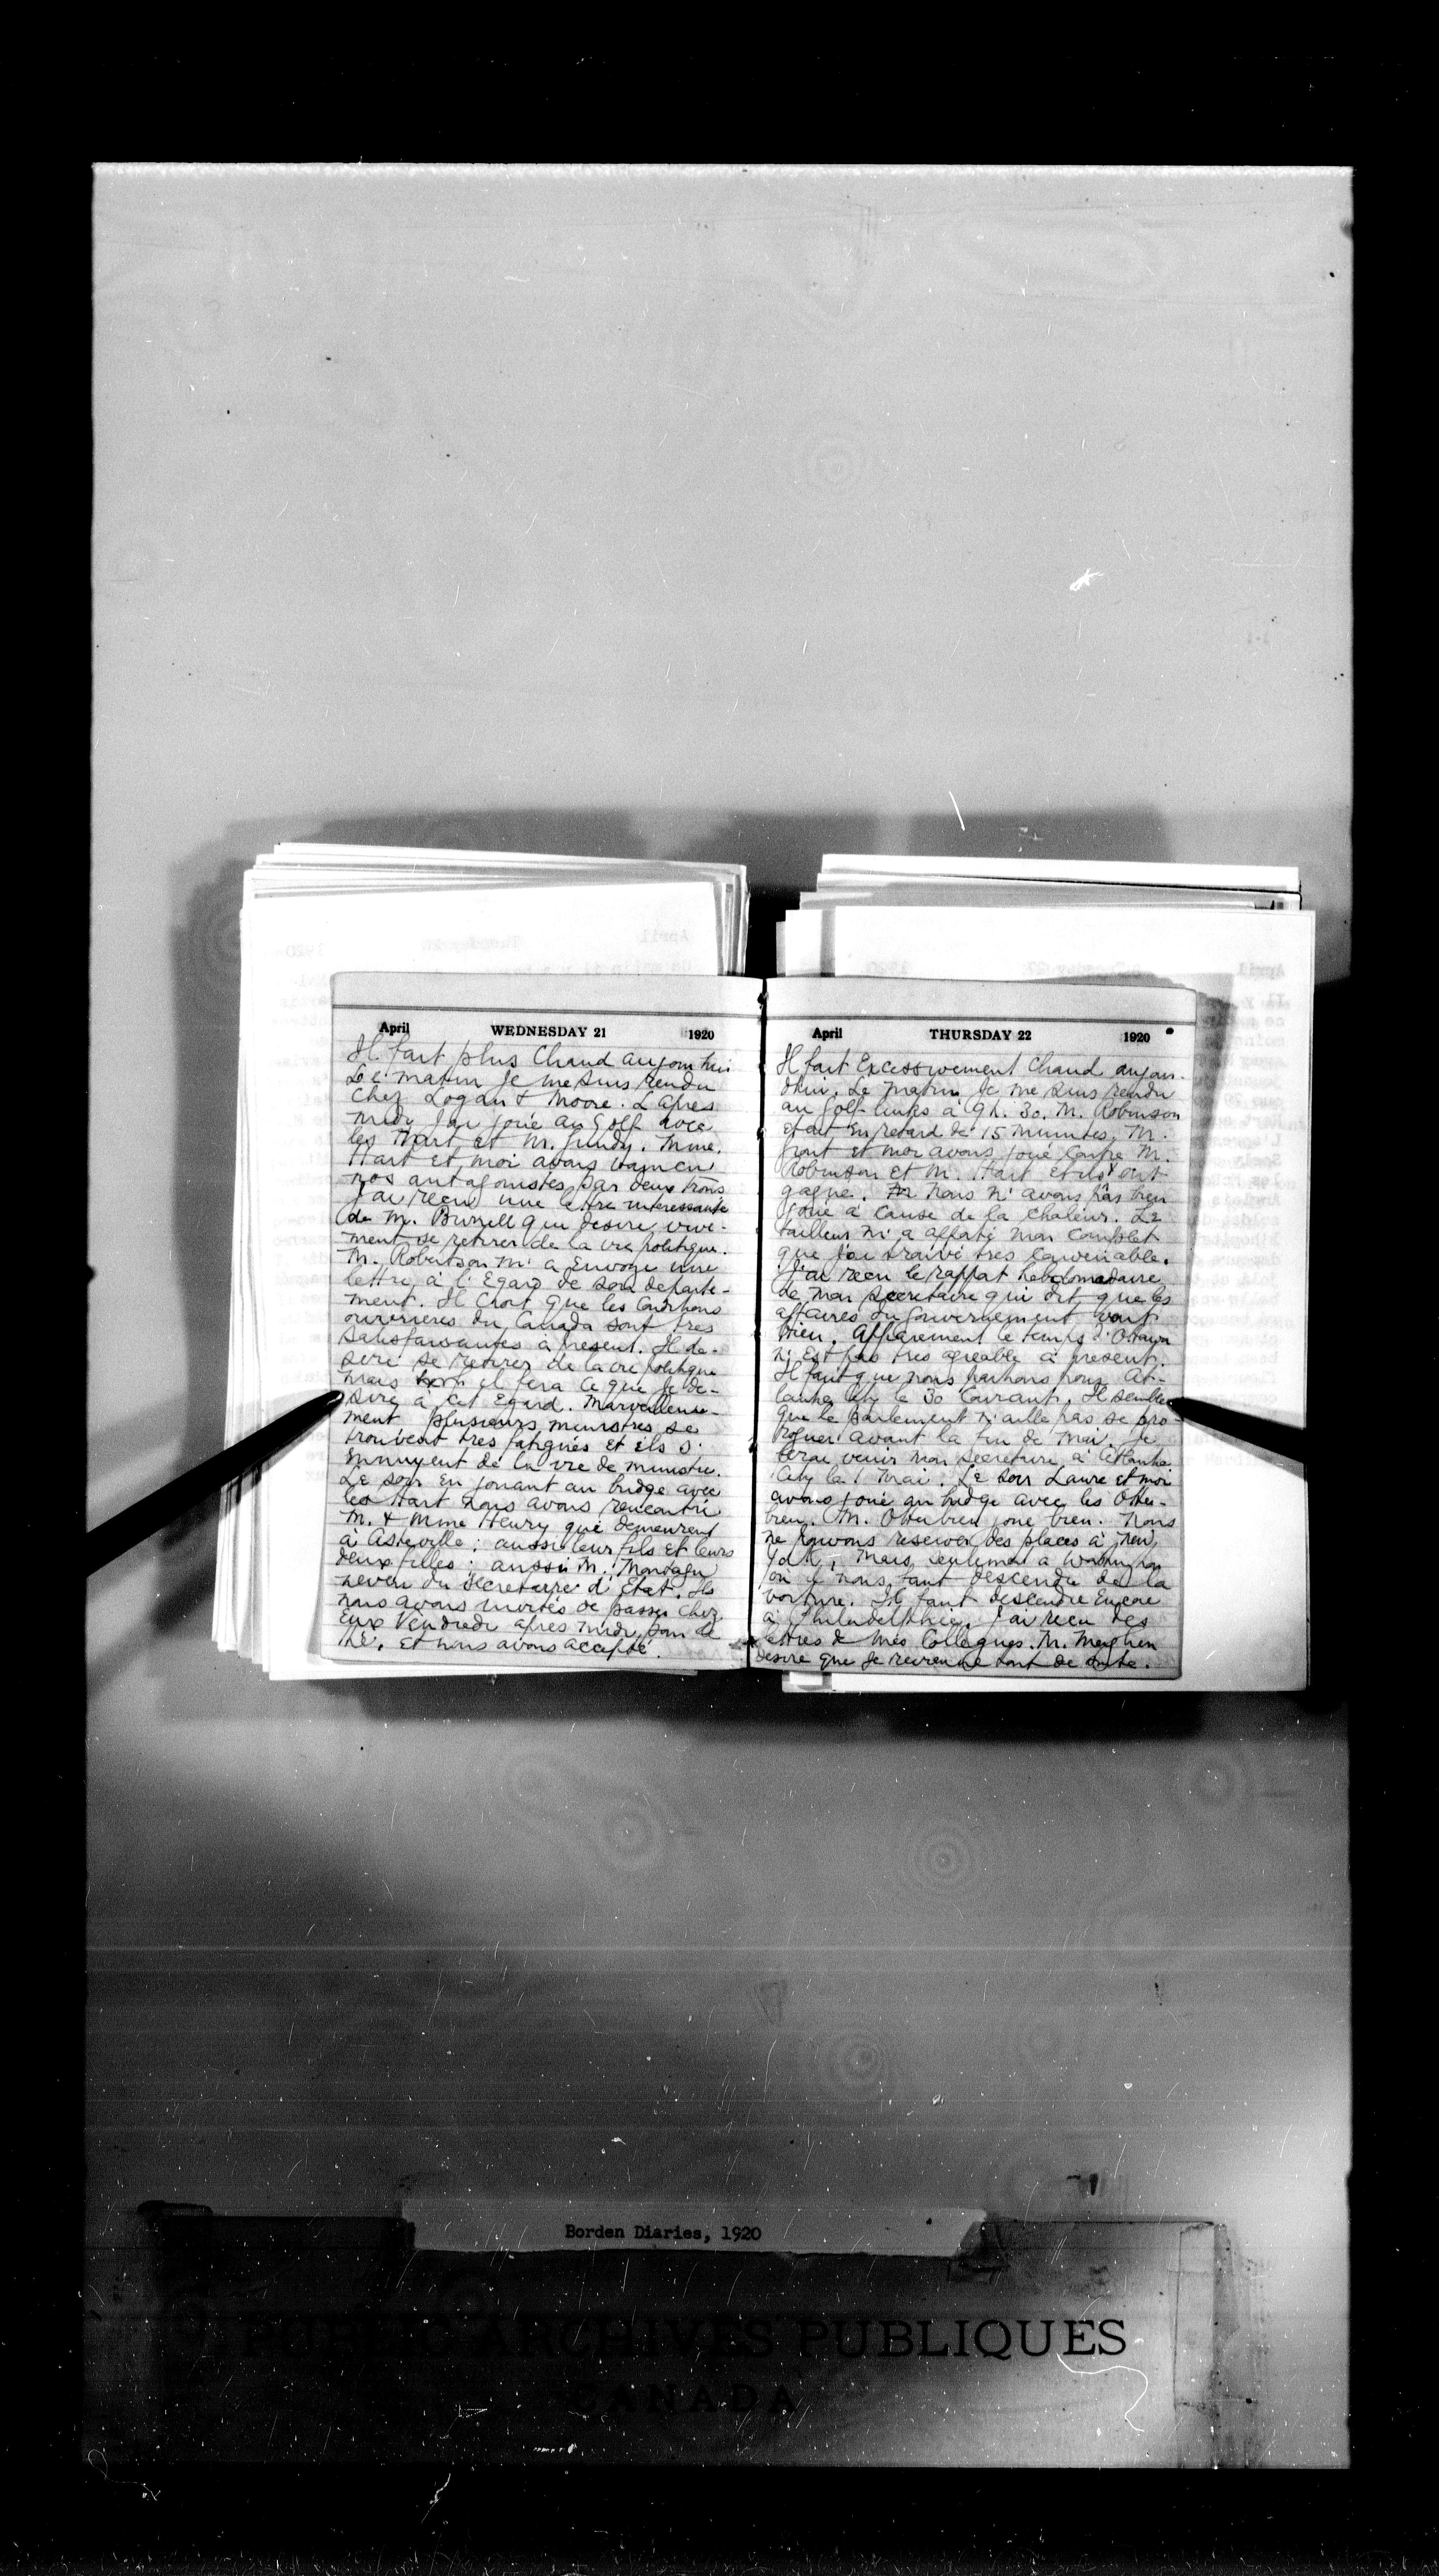 April WEDNESDAY 21 1920
Il fait plus chaud aujourhui
Le matin je me suis rendu
chez Logan & Moore. L'apres
midi j'ai joué au golf avec
les Hart et M. Gundy. Mme.
Hart et moi avons vaincu
nos antagonistes par deux trous
J'ai recu une lettre interessante
de M. Burrell qui desire vive-
ment se retirer de la vie politique.
M. Robertson m'a envoye une
lettre à l'egard de son departe-
ment. Il croit que les conditions
ouvrieres du Canada sont tres
satisfaisantes à present. Il de-
sire se retirer de la vie politique
mais il fera ce que je de-
sire à cet egard. Marveilleuse-
ment plusieurs ministres se
trouvent tres fatigués et ils s'
ennuyent de la vie de ministre.
Le soir en jouant au bridge avec
les Hart nous avons rencontré
M. & Mme Henry qui demeurent
à Asheville; aussi leur fils et leurs
deux filles; aussi M. Montagu
neveu du secretaire d'Etat. Ils
nous avons invités de passer chez
eux Vendredi apres midi pour le
thé. Et nous avons accepté.
April THURSDAY 22 1920
Il fait excessivement chaud aujour-
dhui. Le matin je me suis rendu
au golf links à 9 h. 30. M. Robinson
etait en retard de 15 minutes. M.
et moi avons joué contre M.
Robinson et M. Hart et ils ont
gagné. Nous n'avons pas bien
joué à cause de la chaleur. Le
tailleur m'a apporté mon complet
que j'ai trouvé tres convenable.
J'ai recu le rapport hebdomadaire
de mon secretaire qui dit que les
affaires du gouvernement vont
bien. Apparement le temps d'Ottawa
n'est pas tres agreable à present.
Il faut que nous partions pour At-
lantic City le 30 courant. Il semble
que le parlement n'aille pas se pro-
roguer avant la fin de Mai. Je
ferai venir mon secretaire à Atlantic
City le 1 Mai. Le soir Laura et moi
avons joué au bridge avec les Otter-
bien. M. Otterbien joue bien. Nous
ne pouvons reserver des places à New
York, mais seulement a Washington
où il nous faut descendre de la
voiture. Il faut descendre encore
à Philadelphie. J'ai recu des
lettres de mes collegues. M. Meighen
desire que je revienne tout de suite.
Borden Diaries, 1920
PUBLIC ARCHIVES PUBLIQUES
CANADA